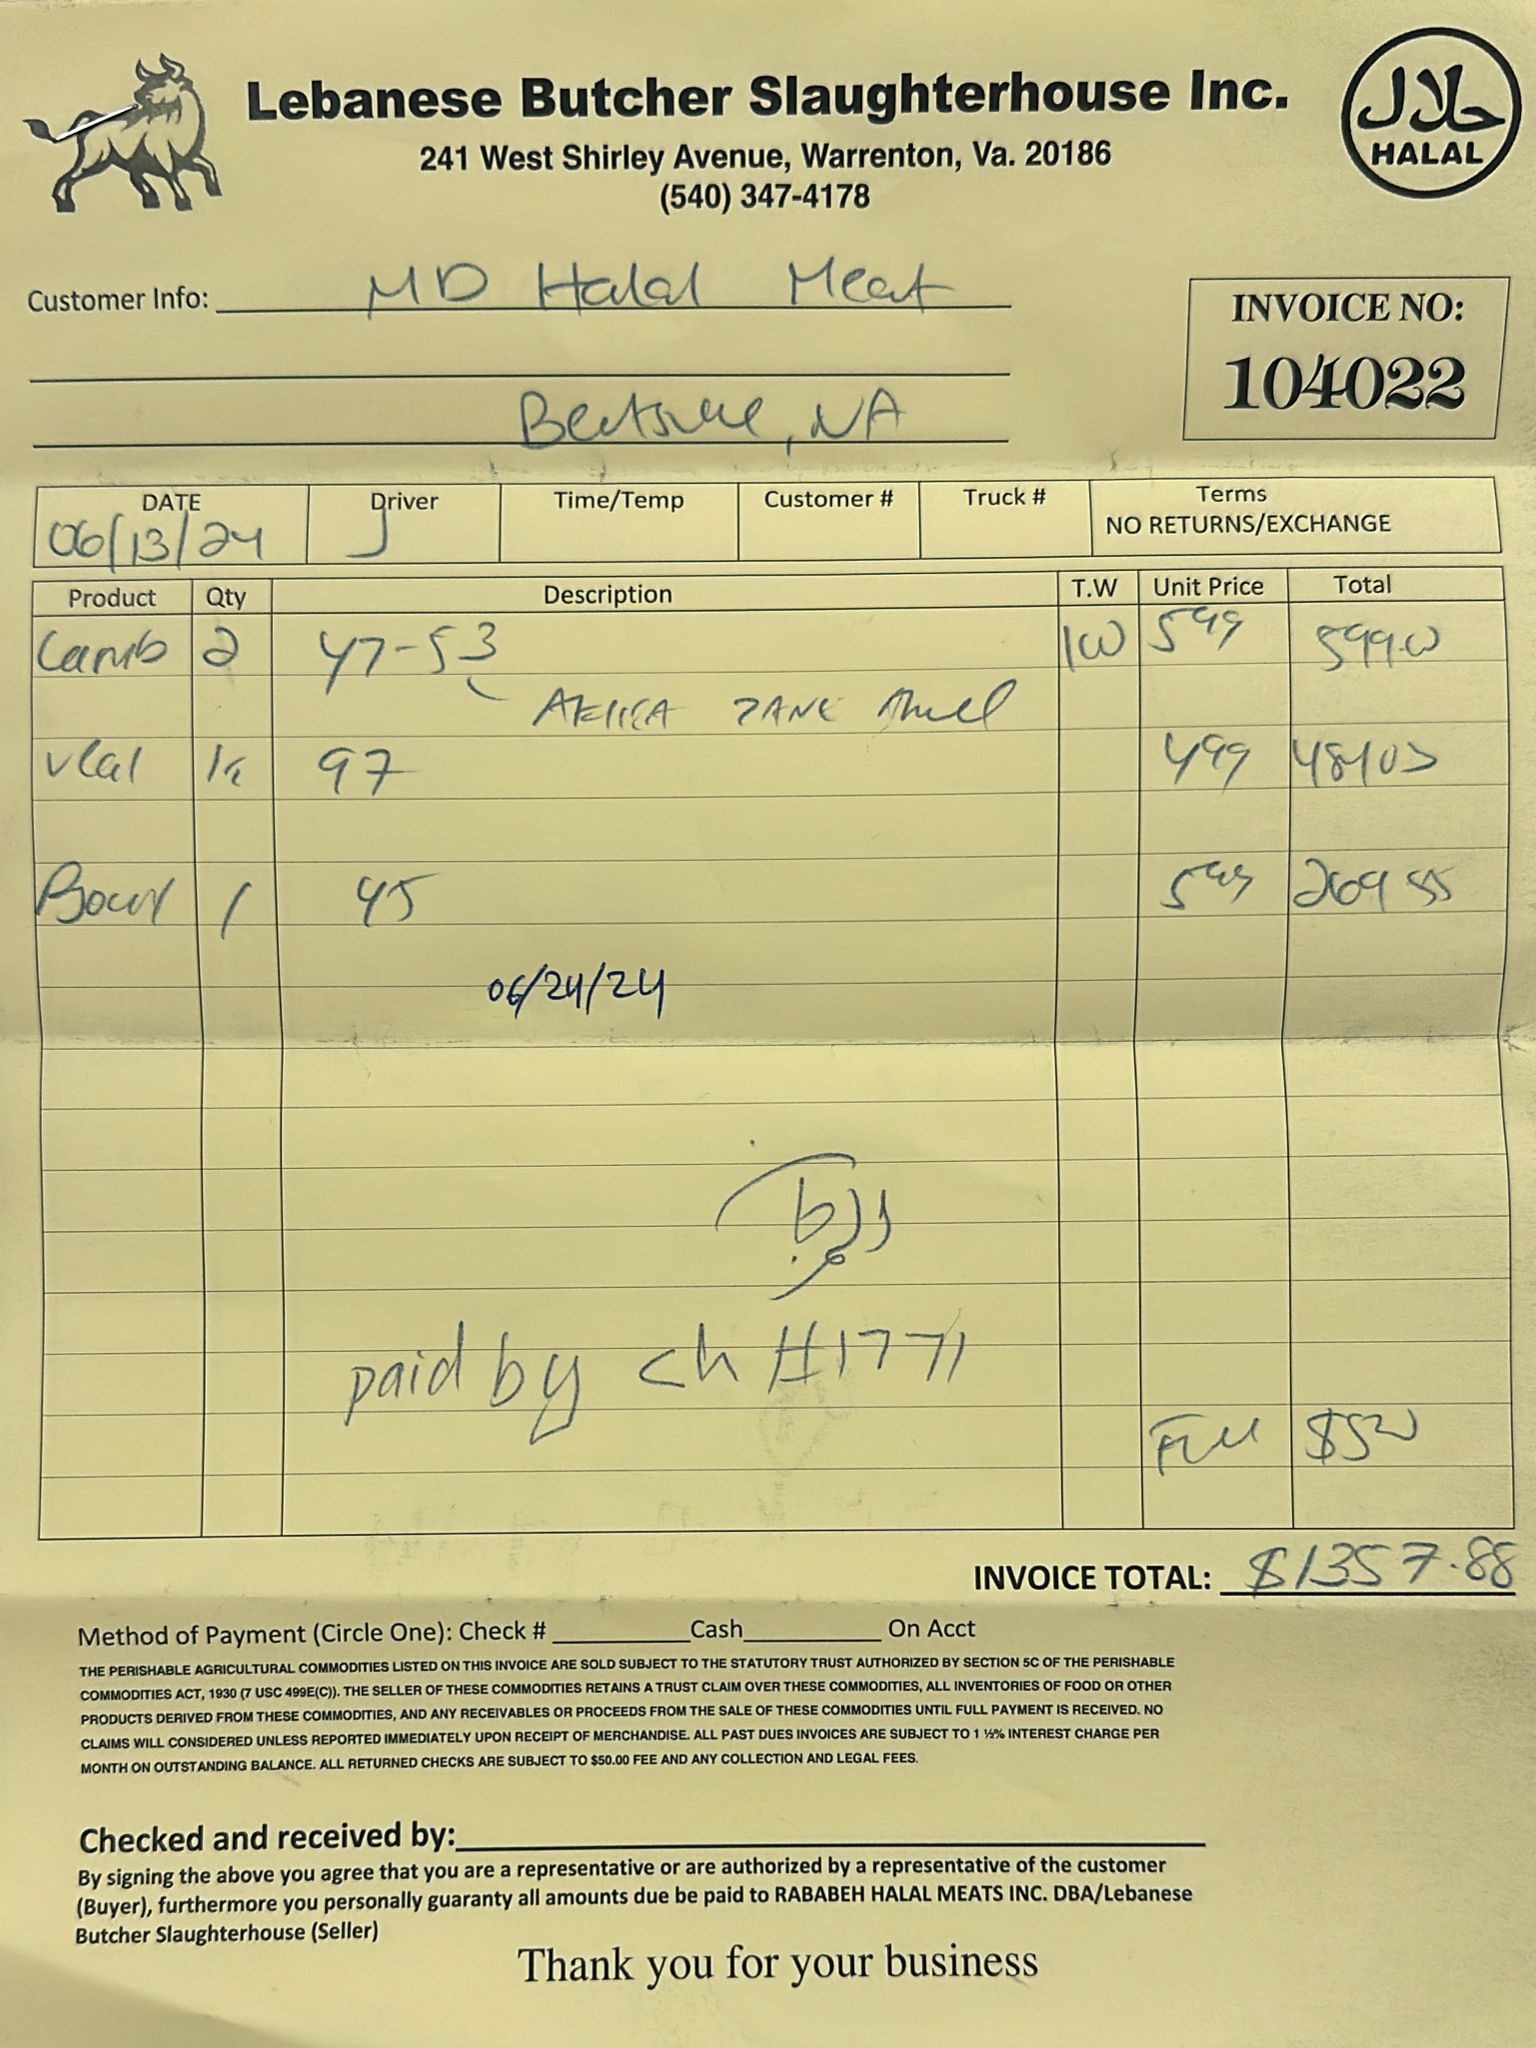 Lebanese Butcher Slaughterhouse Inc.
241 West Shirley Avenue, Warrenton, Va. 20186
(540) 347-4178
حلال
HALAL
Customer Info: MD Halal Meat
INVOICE NO:
104022
DATE Driver Time/Temp Customer # Truck # Terms
06/13/24 J NO RETURNS/EXCHANGE
Product Qty Description T.W Unit Price Total
Lamb 2 47-53 100 5 99 599.00
veal 97 4 99
1 45 5 99 269 55
06/24/24
paid by ch #1771
$5
INVOICE TOTAL: $1357.88
Method of Payment (Circle One): Check # Cash On Acct
THE PERISHABLE AGRICULTURAL COMMODITIES LISTED ON THIS INVOICE ARE SOLD SUBJECT TO THE STATUTORY TRUST AUTHORIZED BY SECTION 5C OF THE PERISHABLE
COMMODITIES ACT, 1930 (7 USC 499E(C)). THE SELLER OF THESE COMMODITIES RETAINS A TRUST CLAIM OVER THESE COMMODITIES, ALL INVENTORIES OF FOOD OR OTHER
PRODUCTS DERIVED FROM THESE COMMODITIES, AND ANY RECEIVABLES OR PROCEEDS FROM THE SALE OF THESE COMMODITIES UNTIL FULL PAYMENT IS RECEIVED. NO
CLAIMS WILL CONSIDERED UNLESS REPORTED IMMEDIATELY UPON RECEIPT OF MERCHANDISE. ALL PAST DUES INVOICES ARE SUBJECT TO 1 ½% INTEREST CHARGE PER
MONTH ON OUTSTANDING BALANCE. ALL RETURNED CHECKS ARE SUBJECT TO $50.00 FEE AND ANY COLLECTION AND LEGAL FEES.
Checked and received by:
By signing the above you agree that you are a representative or are authorized by a representative of the customer
(Buyer), furthermore you personally guaranty all amounts due be paid to RABABEH HALAL MEATS INC. DBA/Lebanese
Butcher Slaughterhouse (Seller)
Thank you for your business